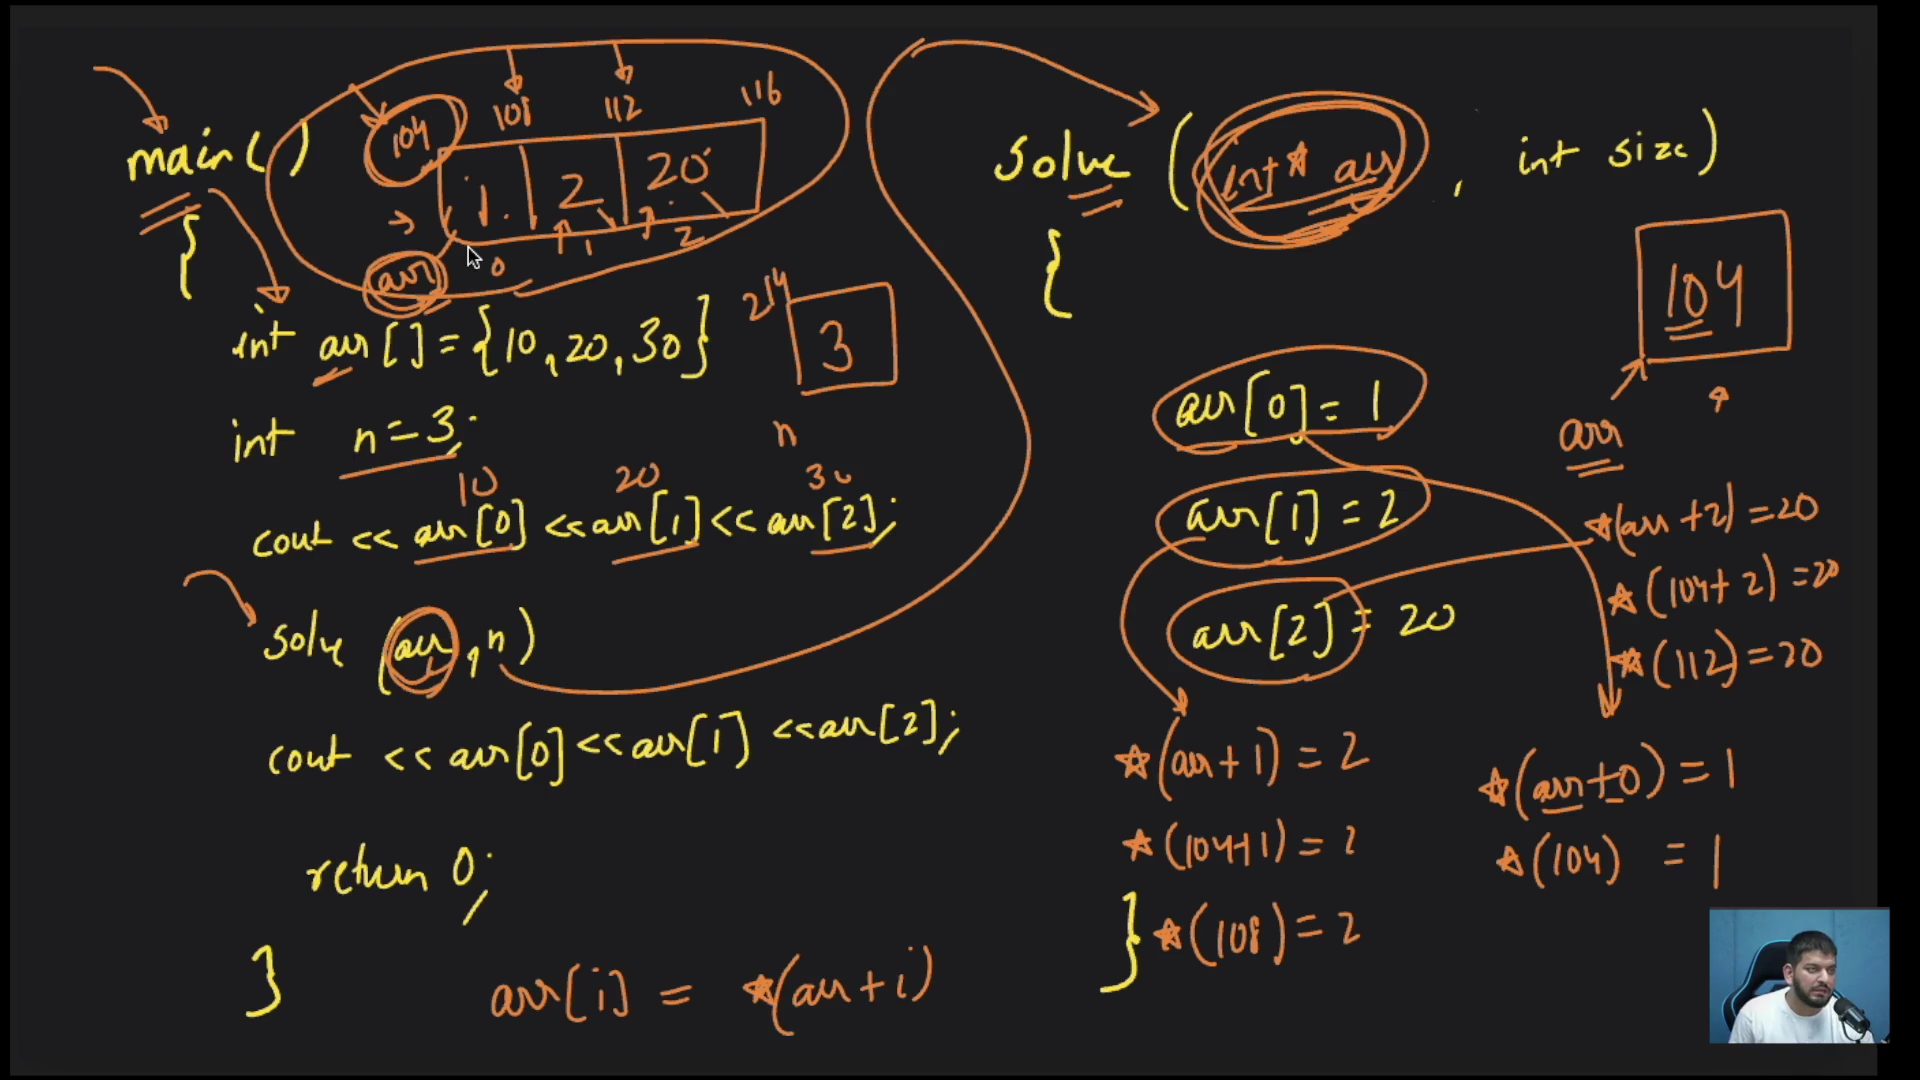 104 108 112 116
main( )
1 2 20
arr 0 1 2
{
int arr[ ] = {10, 20, 30}
214
3
n
int n = 3;
10 20 30
cout << arr[0] << arr[1] << arr[2];
solve (arr, n)
cout << arr[0] << arr[1] << arr[2];
return 0;
}
arr[i] = *(arr+i)
solve ( int* arr , int size )
{
104
arr
arr[0] = 1
arr[1] = 2
arr[2] = 20
*(arr+2) = 20
*(104+2) = 20
*(112) = 20
*(arr+1) = 2
*(104+1) = 2
*(108) = 2
}
*(arr+0) = 1
*(104) = 1